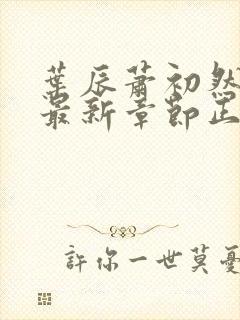 葉辰蕭初然
最新章節正
許你一世莫憂